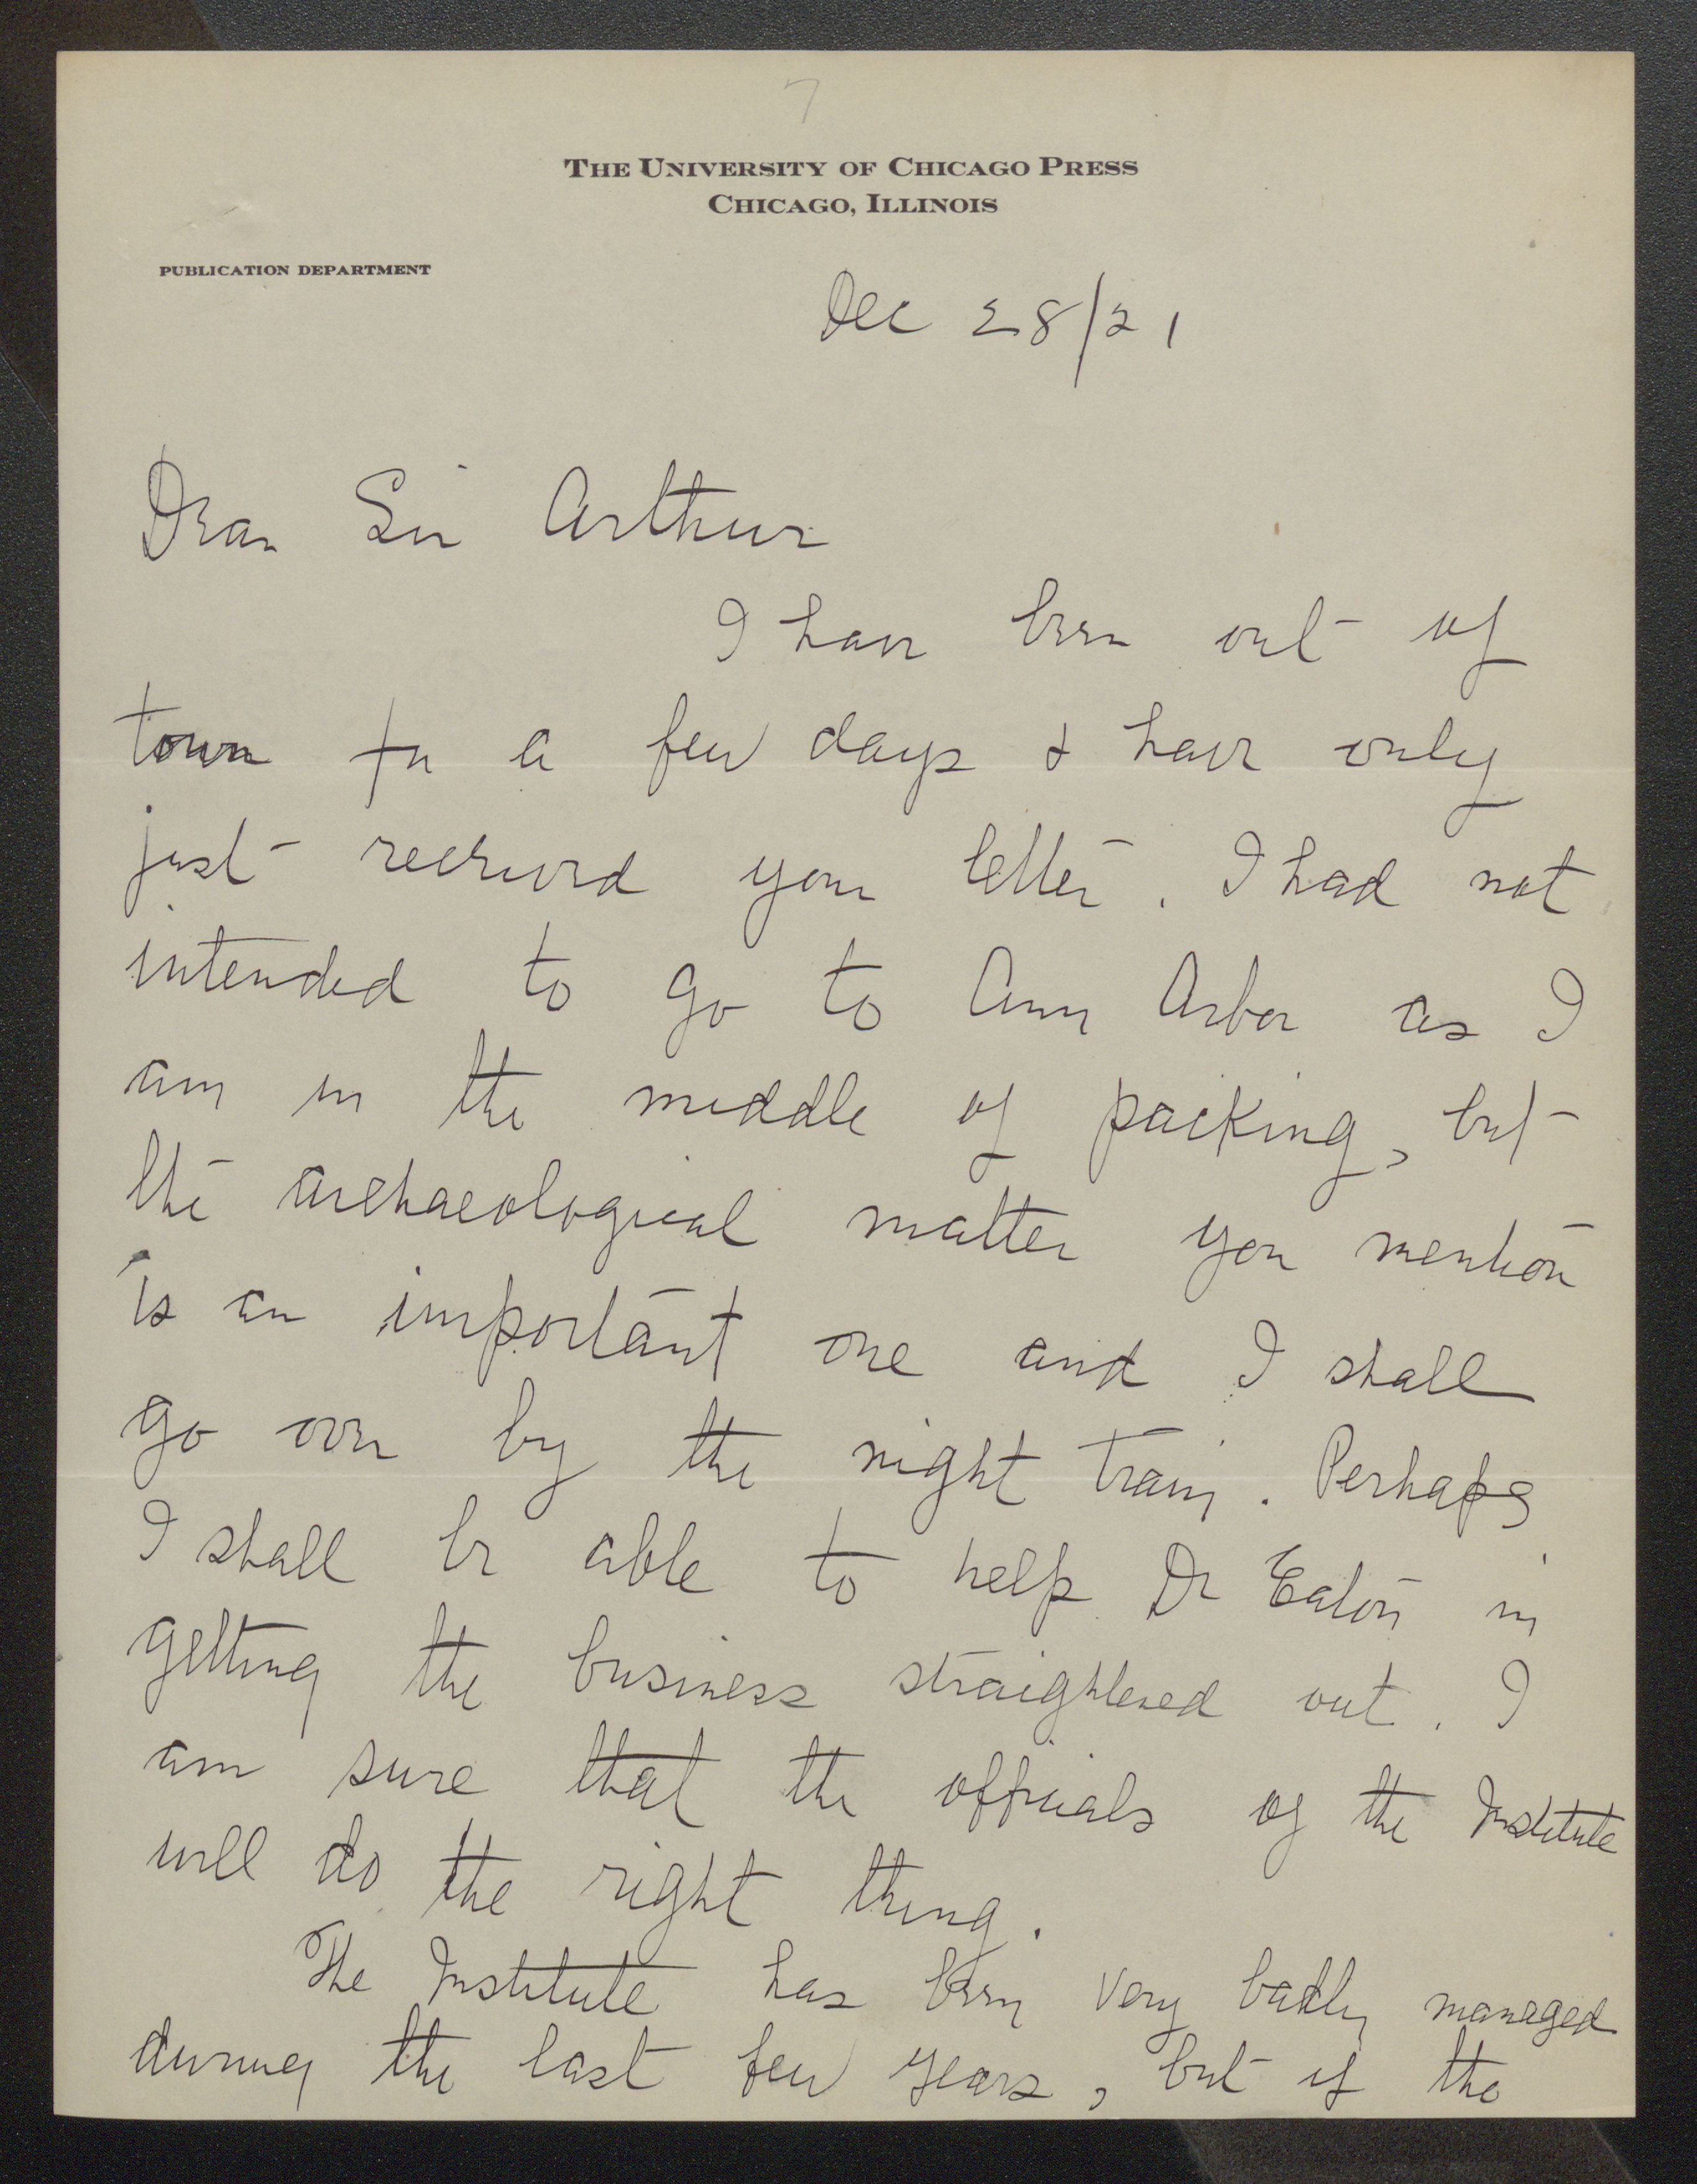 7
THE UNIVERSITY OF CHICAGO PRESS
CHICAGO, ILLINOIS
PUBLICATION DEPARTMENT
Dec 28/21
Dear Sir Arthur
I have been out of
town for a few days & have only
just received your letter. I had not
intended to go to Ann Arbor as I
am in the middle of packing, but
the archaeological matter you mention
is an important one and I shall
go over by the night train. Perhaps
I shall be able to help Dr Eaton in
getting the business straightened out. I
am sure that the officials of the Institute
will do the right thing.
The Institute has been very badly managed
during the last few years, but if the